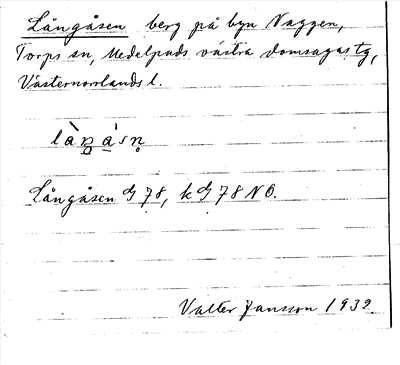 Långåsen berg på byn Naggen,
Torps sn, Medelpads västra domsagas tg,
Västernorrlands l.
Långåsen G 78, k G 78 NO.
Valter Jansson 1932